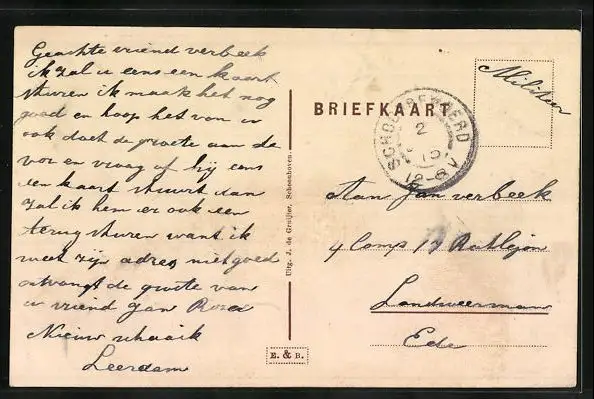 Geachte vriend verbeek
ik zal u eens een kaart
sturen ik maak het nog
goed en hoop het van u
ook doet de groete aan de
vor en vraag of hij eens
een kaart stuurt dan
zal ik hem er ook een
terug sturen want ik
weet zijn adres niet goed
ontvangt de groete van
u vriend Jan Roza
Nieuw schaaik
Leerdam
Uitg. J. de Gruijter, Schoonhoven.
E. & B.
BRIEFKAART
2
12-6 V
Militair
Aan Jan verbeek
4 Comp 17 Batlejon
Landweerman
Ede